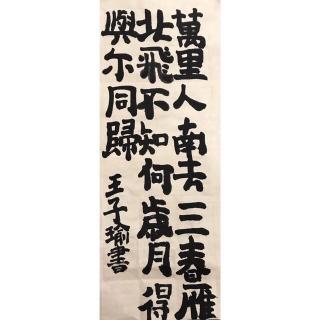 萬里人南去三春雁
北飛不知何歲月得
與尔同歸
王子瑜書